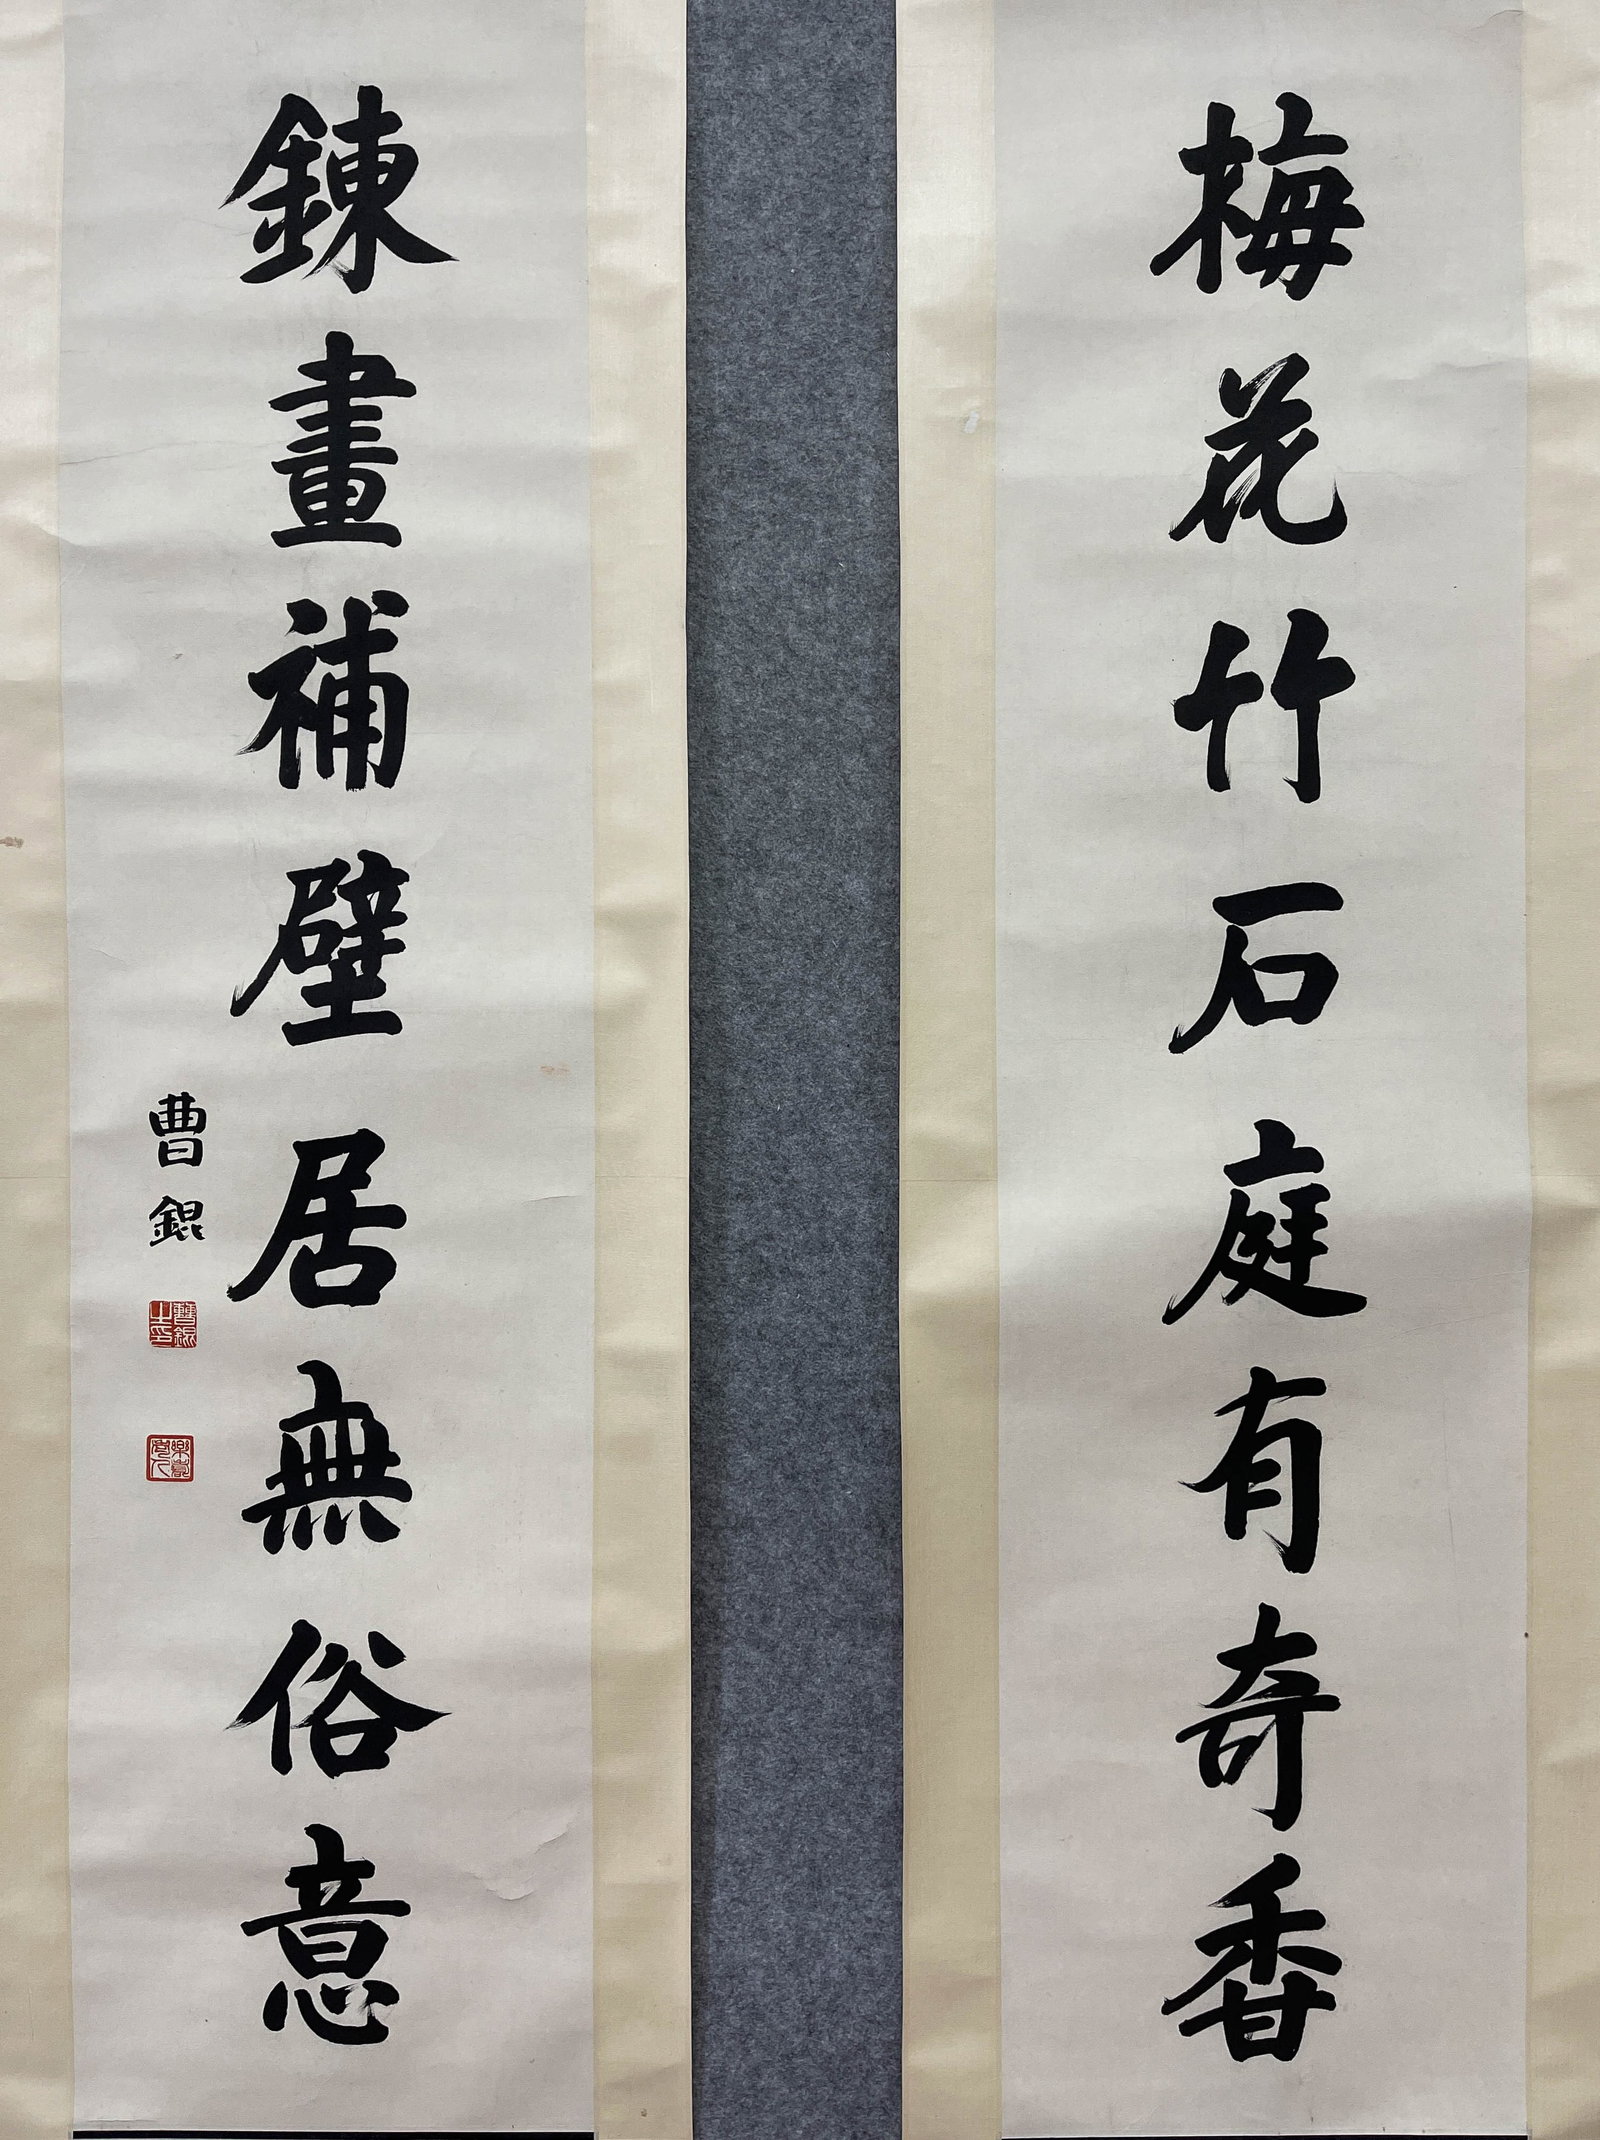 梅花竹石庭有奇香
鍊畫補壁居無俗意
曹錕
曹錕之印